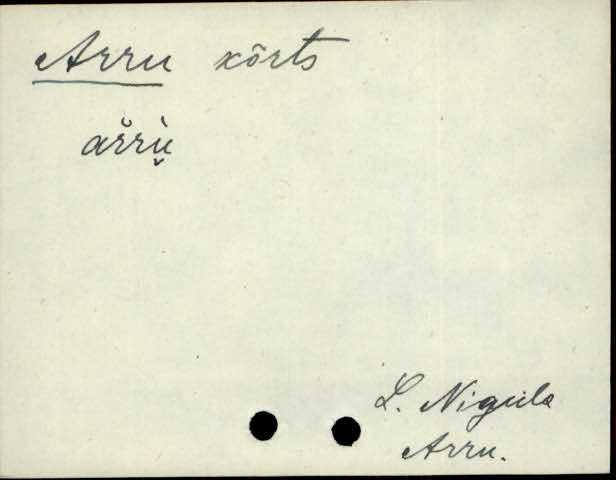 Arru kõrts
ar̆rù̬
L. Nigula
Arru.